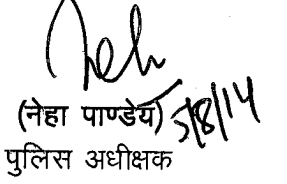 Neh
(नेहा पाण्डेय) 5/8/14
पुलिस अधीक्षक